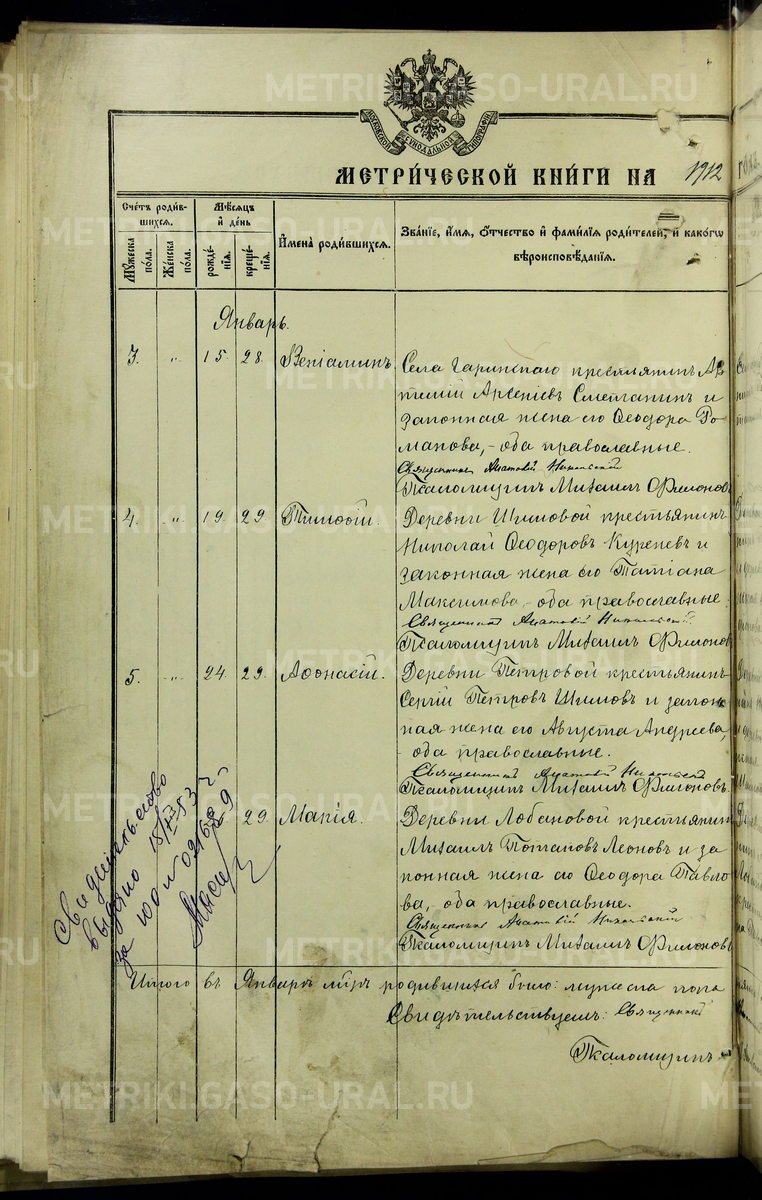 METRIKI.GASO-URAL.RU
МОСКОВСКОЙ СѴНОДАЛЬНОЙ ТИПОГРАФІИ
МЕТРИ́ЧЕСКОЙ КНИ́ГИ НА 1912
Сче́тъ роди́в-
шихся.
Му́жеска по́ла.
Же́нска по́ла.
Мѣ́сяцъ
и҆ де́нь
рожде́нїя.
креще́нїя.
И҆мена̀ роди́вшихся.
Зва́нїе, и҆́мѧ, ѻ҆́тчество и҆ фами́лїѧ роди́телей, и҆ како́гѡ
вѣроисповѣ́данїѧ.
Январь.
3. „ 15 28 Веніаминъ.
Села Гаринскаго крестьянинъ Ар-
темій Арсеніевъ Сметанинъ и
законная жена его Ѳеодора Ро-
манова, - оба православные.
Священникъ Никольскій
Псаломщикъ Михаилъ Филоновъ
4. „ 19. 29. Тимоѳій.
Деревни Шимовой крестьянинъ
Николай Ѳеодоровъ Куреневъ и
законная жена его Татіана
Максимова, - оба православные.
Священникъ Никольскій
Псаломщикъ Михаилъ Филоновъ
5. „ 24. 29. Аѳонасій.
Деревни Петровой крестьянинъ
Сергій Петровъ Шимовъ и закон-
ная жена его Августа Андреева,
оба православные.
Священникъ Никольскій
Псаломщикъ Михаилъ Филоновъ.
29. Марія.
Деревни Лобановой крестьянинъ
Михаилъ Потаповъ Леоновъ и за-
конная жена его Ѳеодора Павло-
ва, оба православные.
Священникъ Никольскій
Псаломщикъ Михаилъ Филоновъ
Свидетельство
выдано
за
Итого въ Январѣ мѣс. родившихся было: мужеска пола
Свидѣтельствуемъ: Священникъ
Псаломщикъ